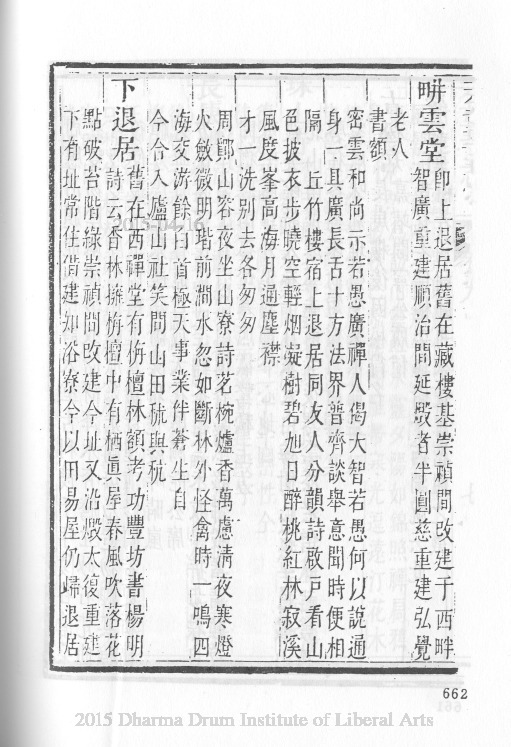 畊雲堂 即上退居舊在藏樓基崇禎間改建于西畔
智廣重建順治間延毀者半圓慈重建弘覺
老人
書額
密雲和尚示若愚廣禪人偈大智若愚何以說通
身一具廣長舌十方法界普齊談舉意聞時便相
隔 丘竹樓宿上退居同友人分韻詩啟戸看山
色披衣步曉空輕烟凝樹碧旭日醉桃紅林寂溪
風度峯高海月通塵襟
才一洗別去各匆匆
周鄮山容夜坐山寮詩茗椀爐香萬慮清夜寒燈
火斂微明堦前澗水忽如斷林外怪禽時一鳴四
海交游餘白首極天事業伴蒼生自
今合入廬山社笑問山田秫與秔
下退居 舊在西禪堂有栴檀林額考功豐坊書楊明
詩云香林擁栴檀中有栖眞屋春風吹落花
點破苔階綠崇禎間改建今址又沿毀太復重建
下有址常住偕建如浴寮今以田易屋仍歸退居
662
2015 Dharma Drum Institute of Liberal Arts